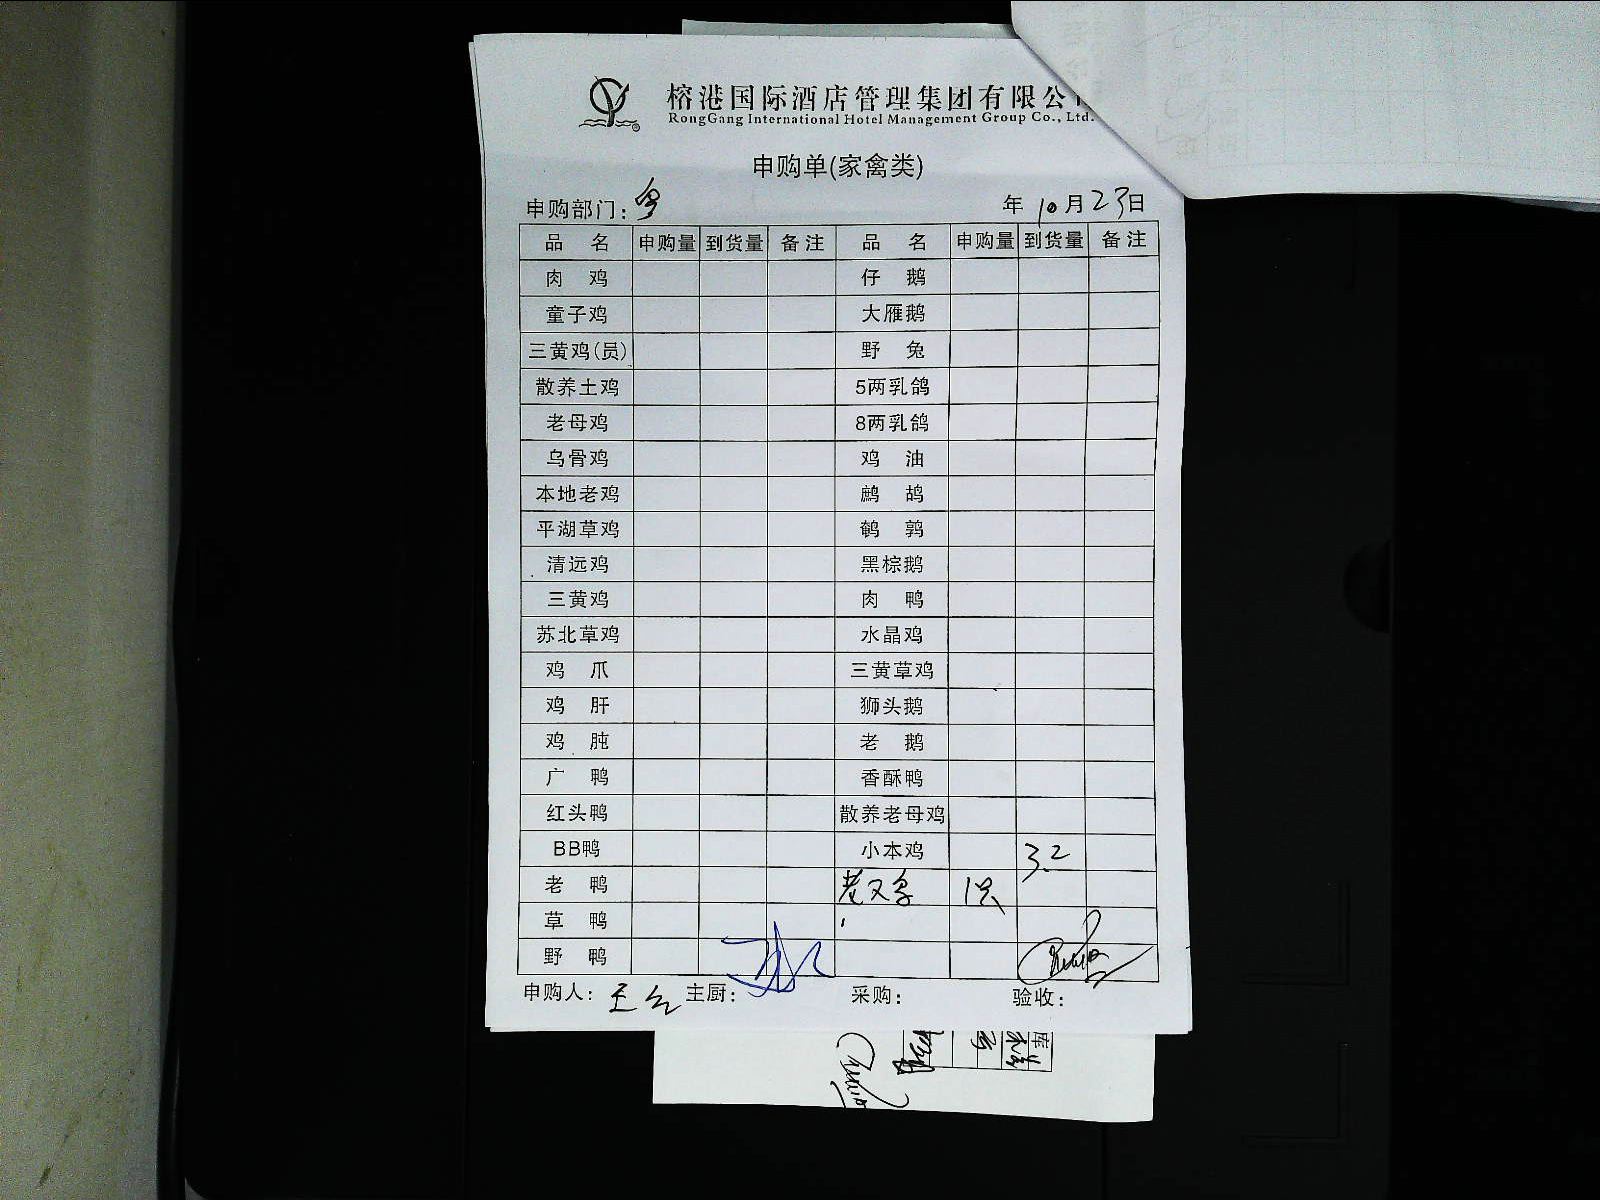 榕港国际酒店管理集团有限公
RongGang International Hotel Management Group Co., Ltd.
申购单(家禽类)
申购部门: 年 10月23日
品 名 申购量 到货量 备注 品 名 申购量 到货量 备注
肉 鸡 仔 鹅
童子鸡 大雁鹅
三黄鸡(员) 野 兔
散养土鸡 5两乳鸽
老母鸡 8两乳鸽
乌骨鸡 鸡 油
本地老鸡 鹧 鸪
平湖草鸡 鹌 鹑
清远鸡 黑棕鹅
三黄鸡 肉 鸭
苏北草鸡 水晶鸡
鸡 爪 三黄草鸡
鸡 肝 狮头鹅
鸡 肫 老 鹅
广 鸭 香酥鸭
红头鸭 散养老母鸡
BB鸭 小本鸡 3.2
老 鸭 老 1只
草 鸭
野 鸭
申购人: 主厨: 采购: 验收:
库